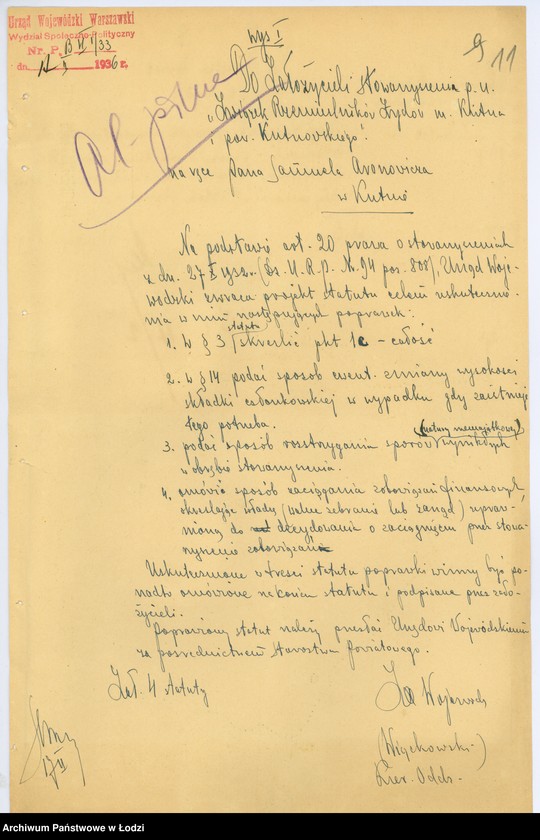 Urząd Wojewódzki Warszawski
Wydział Społeczno-Polityczny
Nr. P. 1/33
dn. 1936 r.
wys I
9 11
Al. pilne
Do Założycieli Stowarzyszenia p.n.
„Związek Rzemieślników Żydów m. Kutna
i pow. Kutnowskiego".
na ręce Pana Samuela Aronowicza
w Kutnie
Na podstawie art. 20 prawa o stowarzyszeniach
z dn. 27 X 1932 r. (Dz. U. R. P. N. 94 poz. 808), Urząd Woje-
wódzki zwraca projekt statutu celem uskutecznie-
nia w nim następujących poprawek:
1. w § 3 statutu skreślić pkt 1c - całość
2. w § 14 podać sposób ewent. zmiany wysokości
składki członkowskiej w wypadku gdy zaistnieje
tego potrzeba.
3. podać sposób rozstrzygania sporów (natury niemajątkowej) wynikłych
w obrębie stowarzyszenia.
4. omówić sposób zaciągania zobowiązań finansowych,
określając władzę (walne zebranie lub zarząd) upraw-
nioną do decydowania o zaciągnięciu przez stowa-
rzyszenie zobowiązania
Uskutecznione w treści statutu poprawki winny być po-
nadto omówione na końcu statutu i podpisane przez zało-
życieli.
Poprawiony statut należy przesłać Urzędowi Wojewódzkiemu
za pośrednictwem Starostwa Powiatowego.
Zał. 4 statuty
Za Wojewodę
(Więckowski)
Kier. Oddz.
17 II
Archiwum Państwowe w Łodzi